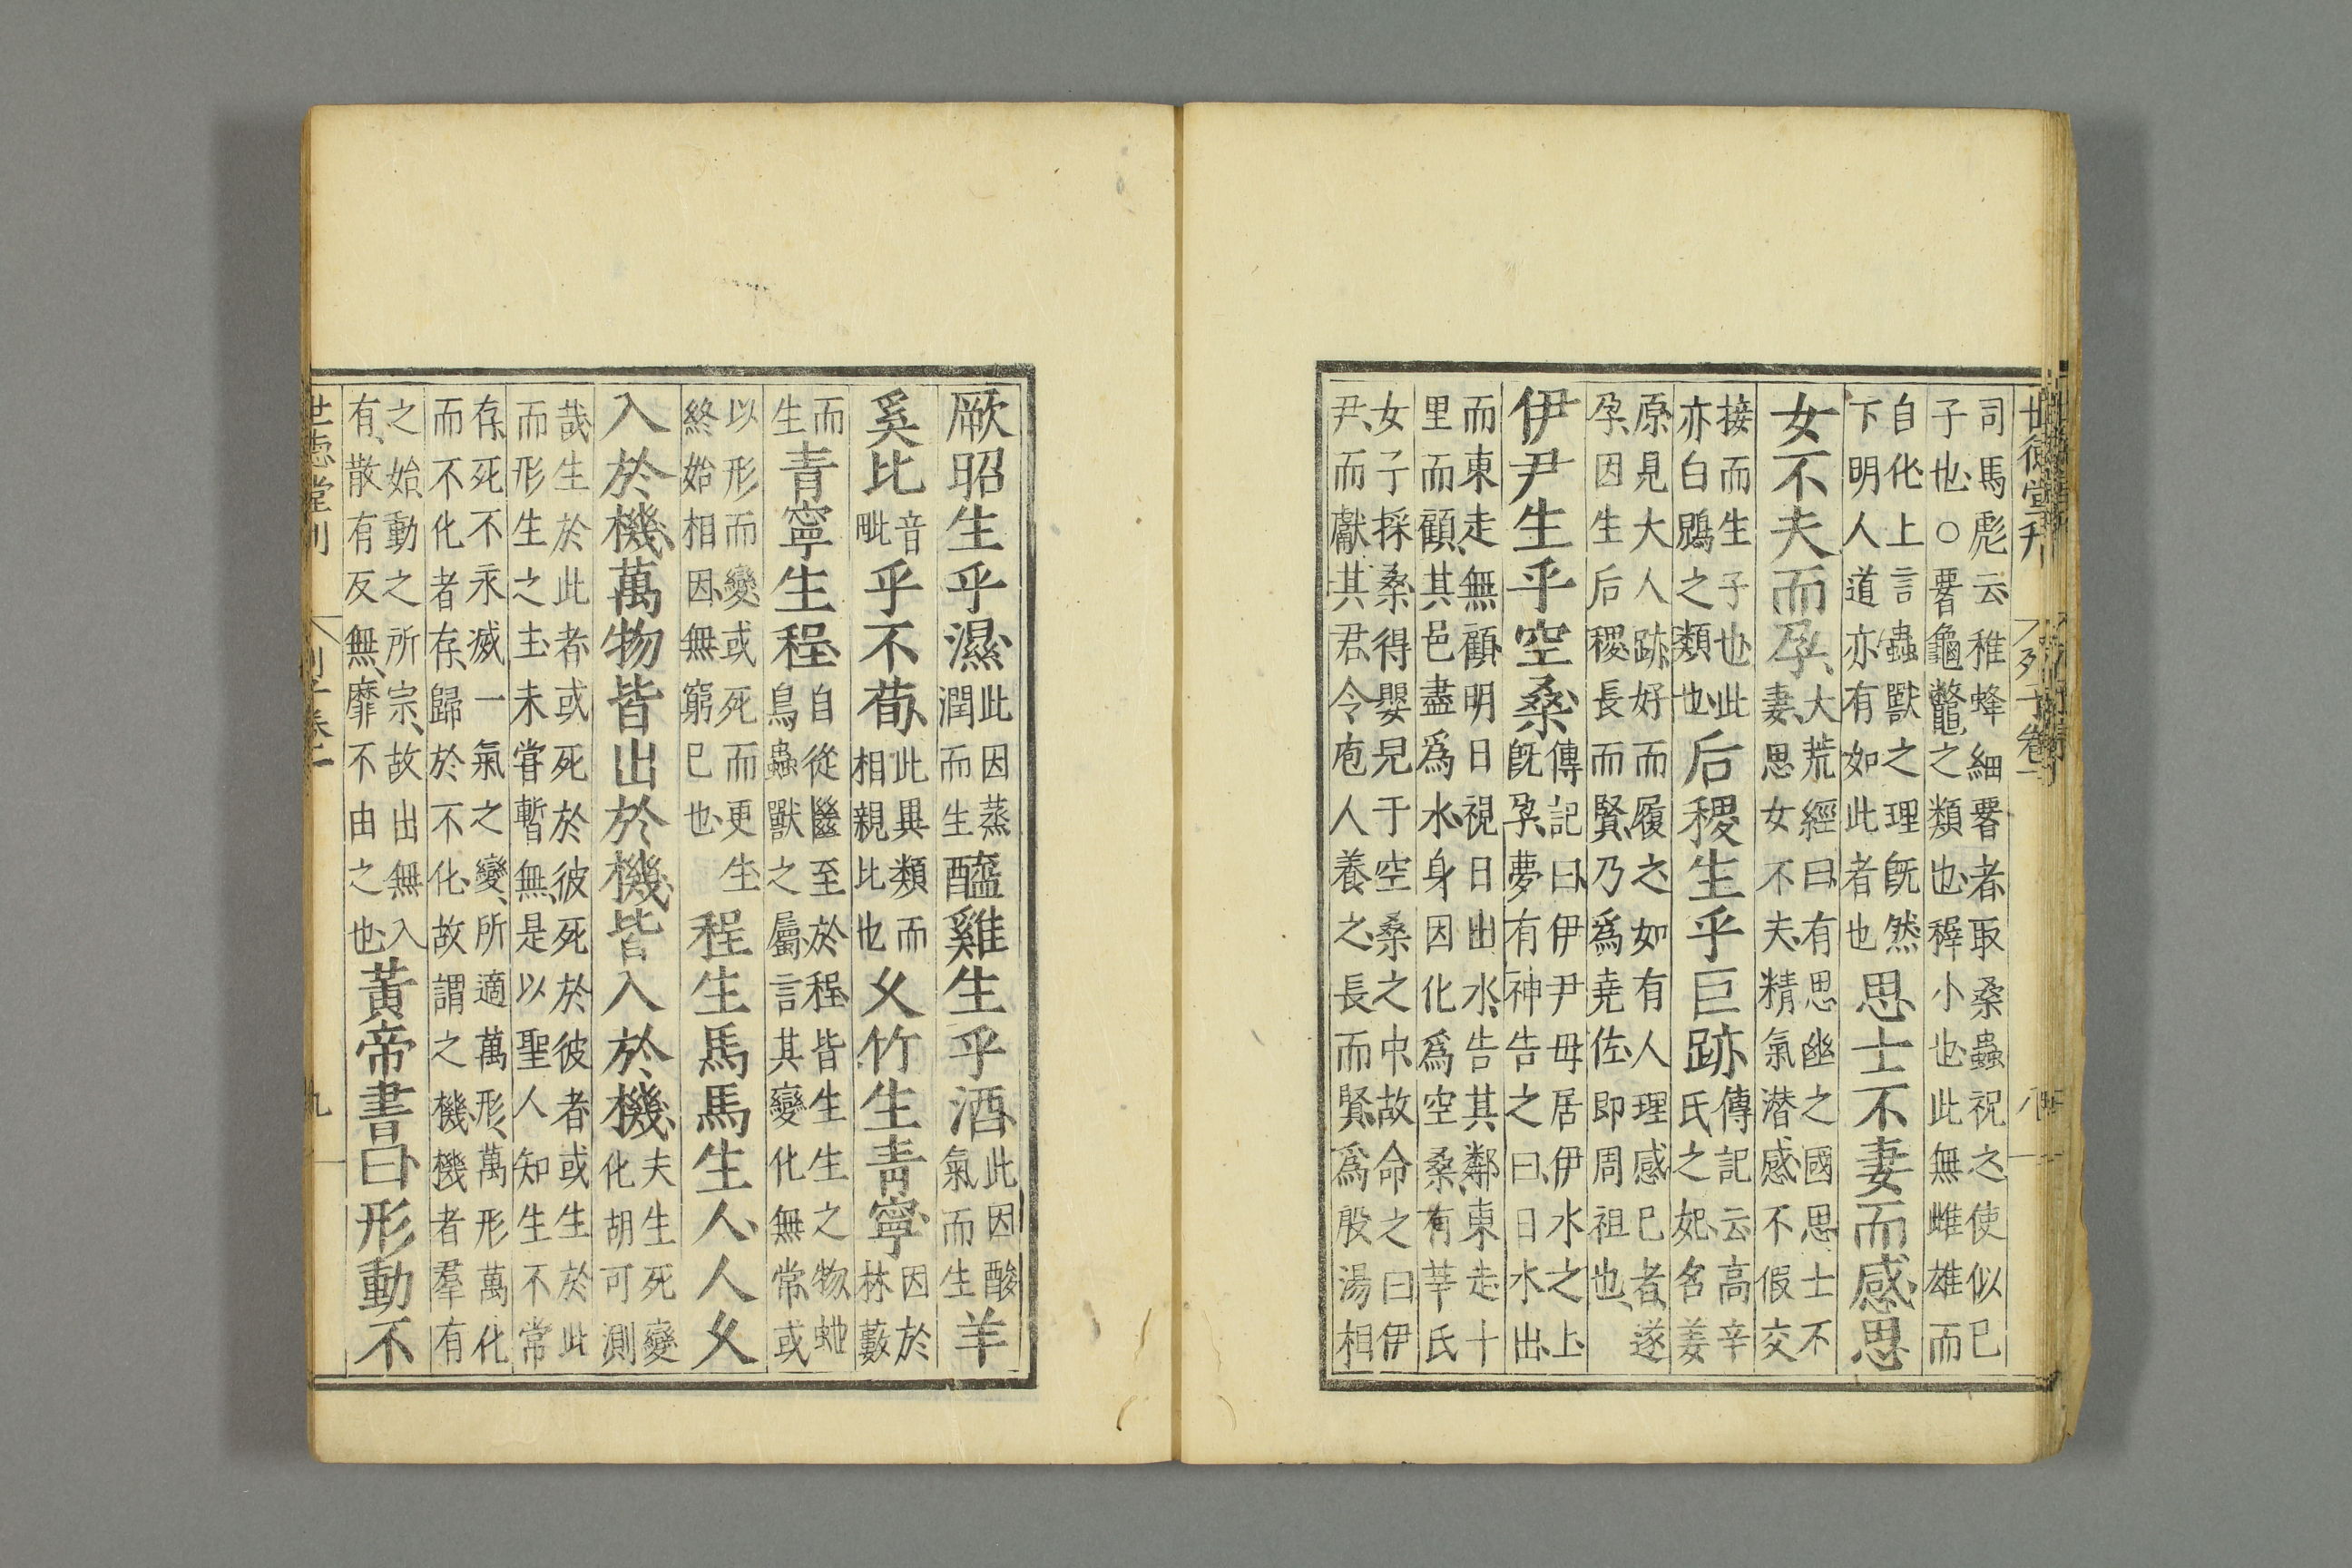 世德堂刊 列子卷一 八
司馬彪云稚蜂細䂮者取桑蟲祝之使似已
子也○䂮龜鼈之類也穉小也此無雌雄而
自化上言蟲獸之理旣然
下明人道亦有如此者也思士不妻而感思
女不夫而孕大荒經曰有思幽之國思士不
妻思女不夫精氣潜感不假交
接而生子也此
亦白鵙之類也后稷生乎巨跡傳記云高辛
氏之妃名姜
原見大人跡好而履之如有人理感已者遂
孕因生后稷長而賢乃爲堯佐即周祖也
伊尹生乎空桑傳記曰伊尹毋居伊水之上
旣孕夢有神告之曰日水出
而東走無顧明日視日出水告其鄰東走十
里而顧其邑盡爲水身因化爲空桑有莘氏
女子採桑得嬰兒于空桑之中故命之曰伊
尹而獻其君令庖人養之長而賢爲殷湯相
厥昭生乎濕此因蒸
潤而生醯雞生乎酒此因酸
氣而生羊
奚比音
毗乎不荀此異類而
相親比也父竹生青寧因於
林藪
而
生青寧生程自從䜌至於程皆生生之物虵
鳥蟲獸之屬言其變化無常或
以形而變或死而更生
終始相因無窮已也程生馬馬生人人父
入於機萬物皆出於機皆入於機夫生死變
化胡可測
哉生於此者或死於彼死於彼者或生於此
而形生之主未甞暫無是以聖人知生不常
存死不永滅一氣之變所適萬形萬形萬化
而不化者存歸於不化故謂之機機者羣有
之始動之所宗故出無入
有散有反無靡不由之也黃帝書曰形動不
世德堂刊 列子卷一 九